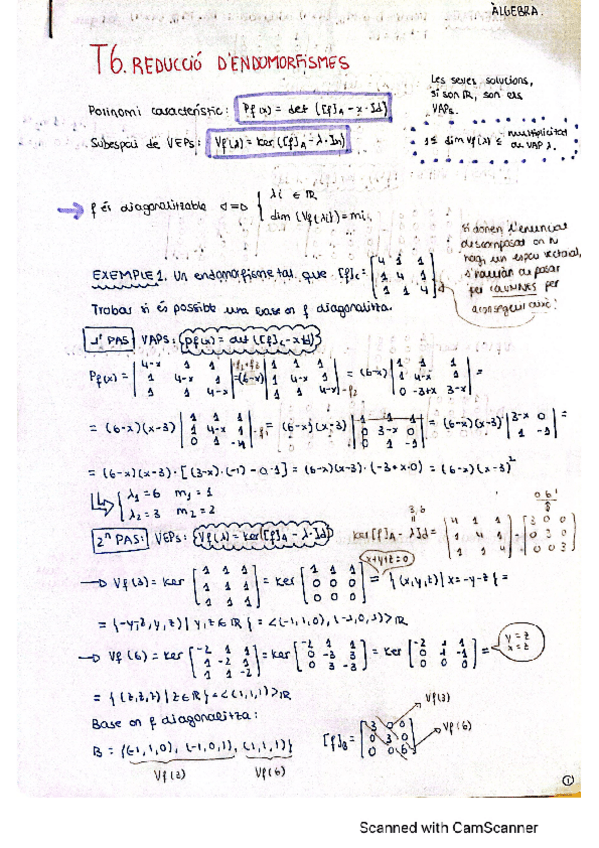 ÀLGEBRA.
T6. REDUCCIÓ D'ENDOMORFISMES
Polinomi característic: Pf(x) = det ([f]A - x·Id)
Les seves solucions,
si són ℝ, són els
VAPs.
Subespai de VEPs: Vf(λ) = ker([f]A - λ·In)
1 ≤ dim Vf(λ) ≤ multiplicitat
du VAP λ.
f és diagonalitzable ⇔ { λi ∈ ℝ
dim (Vf(λi)) = mi.
si donen l'enunciat
descomposat en tu
hag. un espai vectorial,
s'hauran de passar
per COLUMNES per
aconseguir això!
EXEMPLE 1. Un endomorfisme tal que [f]c = [4 1 1
1 4 1
1 1 4]
Trobar si és possible una base on f diagonalitza.
1r PAS VAPS: Pf(x) = det ([f]c - xId)
Pf(x) = |4-x 1 1
1 4-x 1
1 1 4-x| = (6-x) |1 1 1
1 4-x 1
1 1 4-x| = (6-x) |1 1 1
1 4-x 1
0 -3+x 3-x| =
= (6-x)(x-3) |1 1 1
1 4-x 1
0 1 -1| = (6-x)(x-3) |1 1 1
0 3-x 0
0 1 -1| = (6-x)(x-3) |3-x 0
1 -1| =
= (6-x)(x-3) · [(3-x)·(-1) - 0·1] = (6-x)(x-3)·(-3+x+0) = (6-x)(x-3)²
λ1 = 6 m1 = 1
λ2 = 3 m2 = 2
2n PAS: VEPs: Vf(λ) = ker([f]A - λ·Id)
3, 6
ker[f]A - λId = [4 1 1
1 4 1
1 1 4] - [3 0 0
0 3 0
0 0 3]
o 6!
→ Vf(3) = ker [1 1 1
1 1 1
1 1 1] = ker [1 1 1
0 0 0
0 0 0] = {(x,y,z) | x = -y-z} =
x+y+z=0
= {-y-z, y, z) | y, z ∈ ℝ} = <(-1,1,0), (-1,0,1)>ℝ
→ Vf(6) = ker [-2 1 1
1 -2 1
1 1 -2] = ker [-2 1 1
0 -3 3
0 3 -3] = ker [-2 1 1
0 1 -1
0 0 0] =
y = z
x = z
= {(z,z,z) | z ∈ ℝ} = <(1,1,1)>ℝ
Base on f diagonalitza:
B = {(-1,1,0), (-1,0,1), (1,1,1)}
Vf(3) Vf(6)
[f]B = [3 0 0
0 3 0
0 0 6]
Vf(3)
Vf(6)
1
Scanned with CamScanner